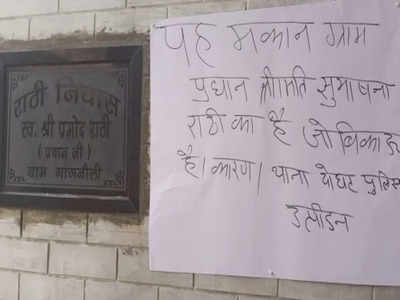 राठी निवास
स्व. श्री प्रमोद राठी
( प्रधान जी )
ग्राम गांगनौली
यह मकान ग्राम
प्रधान श्रीमति सुभाषना
राठी का है जो बिकाऊ
है। कारण। थाना दोघट पुलिस
उत्पीडन